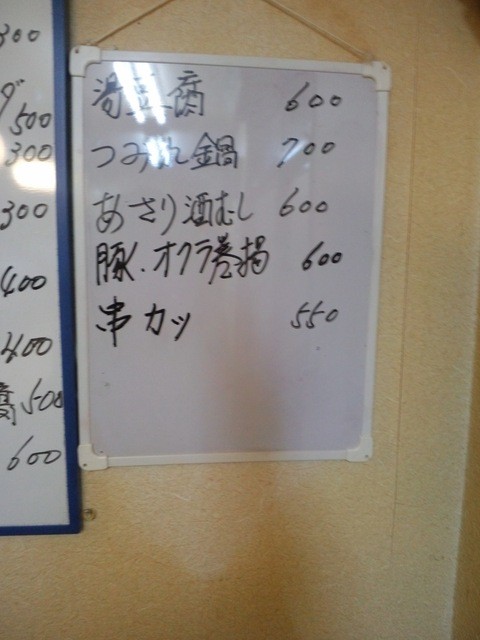 300
グ
500
300
300
400
400
腐 500
600
湯豆腐 600
つみれ鍋 700
あさり酒むし 600
豚、オクラ巻揚 600
串カツ 550